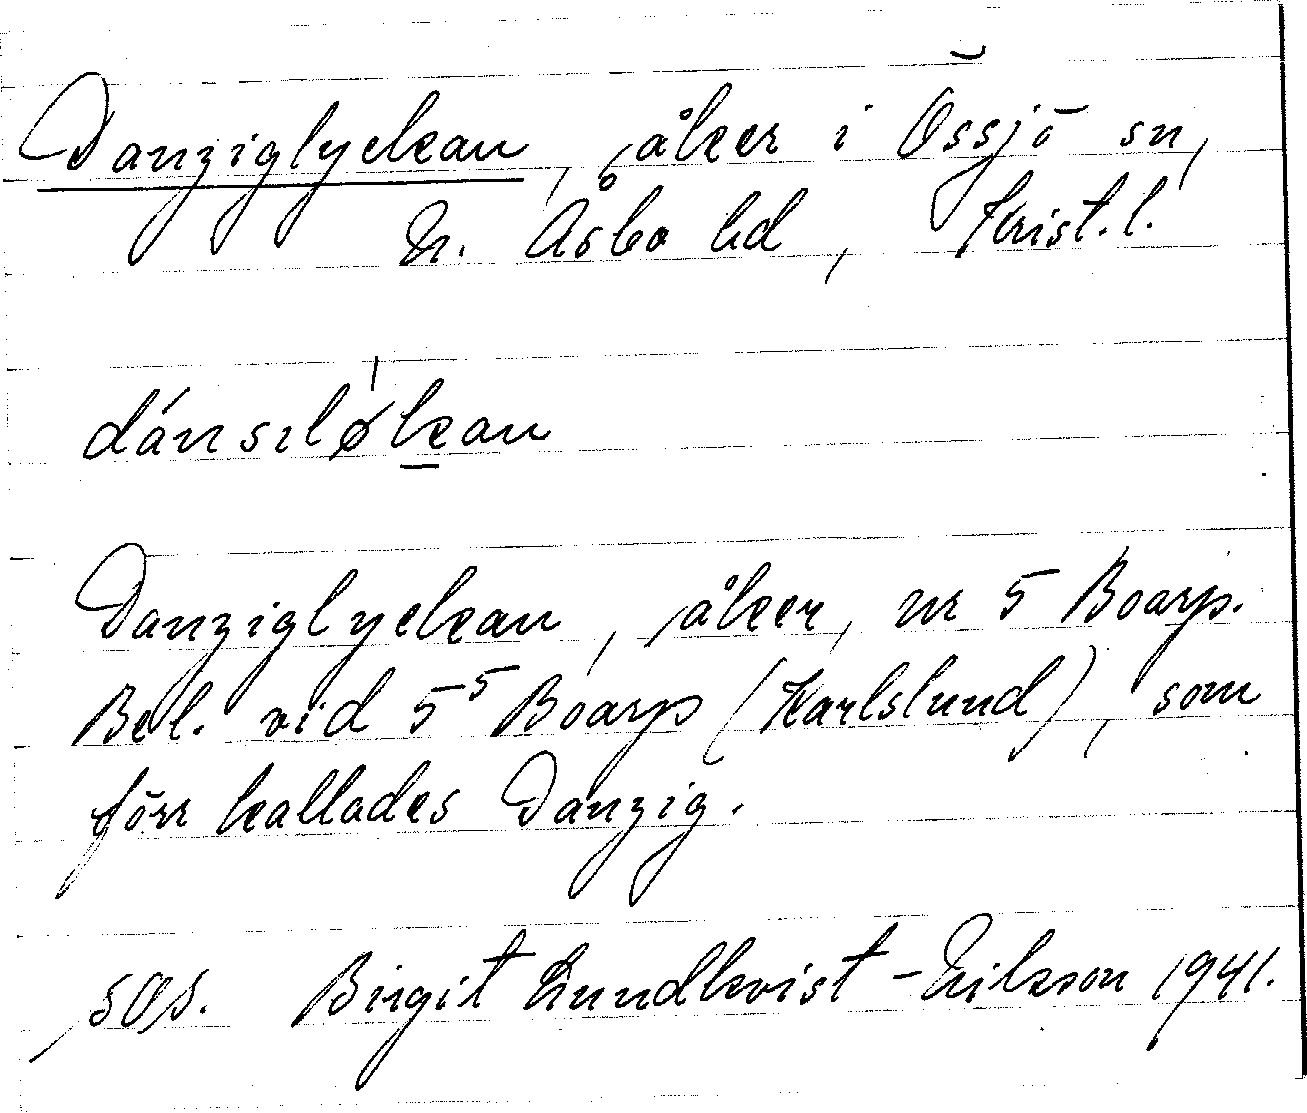 Danziglyckan, åker i Össjö sn,
N. Åsbo hd, Krist. l.
dánsıløkan
Danziglyckan, åker, nr 5 Boarp.
Bel. vid 5⁵ Boarp (Karlslund), som
förr kallades Danzig.
Birgit Lundkvist-Nilsson 1941.